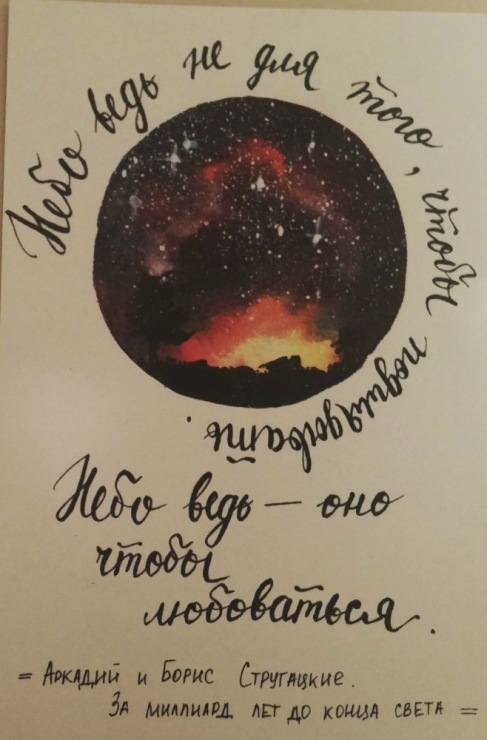 Небо ведь не для того, чтобы подглядывать.
Небо ведь — оно
чтобы
любоваться.
= Аркадий и Борис Стругацкие.
За миллиард лет до конца света =